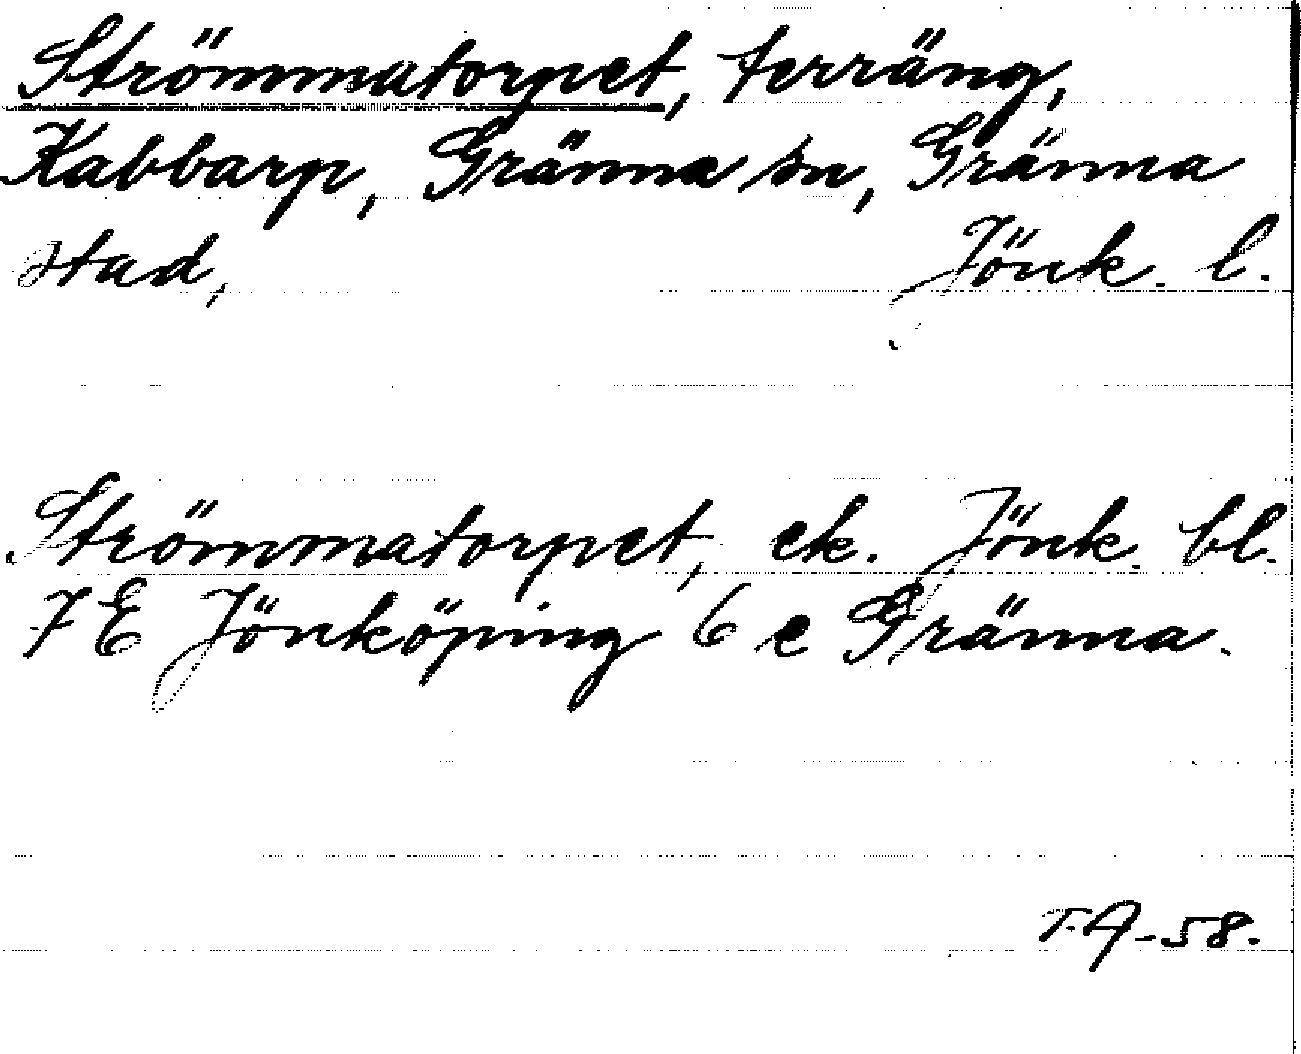 Strömmatorpet, terräng,
Kabbarp, Gränna sn, Gränna
stad, Jönk. l.
Strömmatorpet, ek. Jönk. bl.
7E Jönköping 6 e Gränna.
T.A-58.